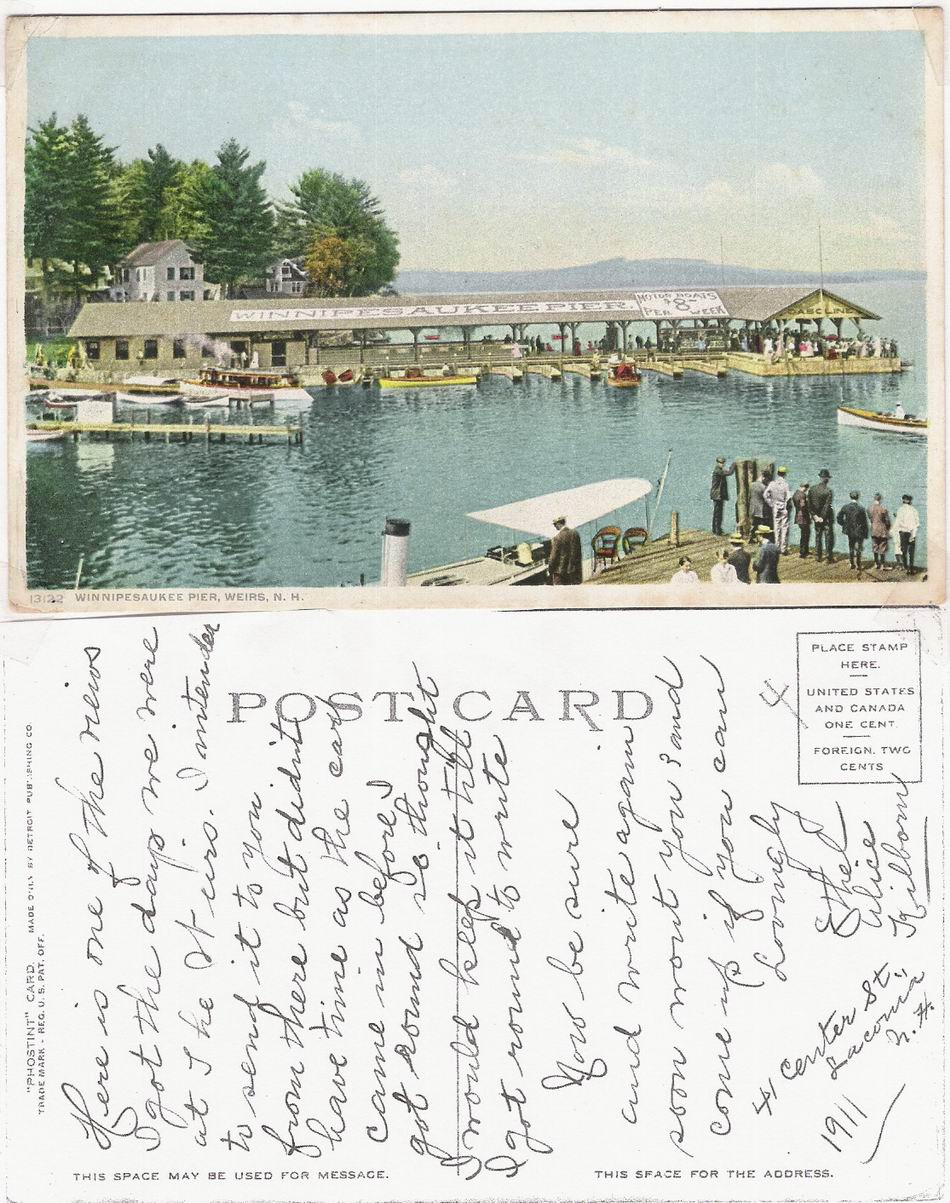 WINNIPESAUKEE PIER.
MOTOR BOATS
$8-
PER WEEK
GASOLINE
13122 WINNIPESAUKEE PIER, WEIRS, N. H.
POST CARD
PLACE STAMP
HERE.
UNITED STATES
AND CANADA
ONE CENT.
FOREIGN, TWO
CENTS
4
"PHOSTINT" CARD. MADE ONLY BY DETROIT PUBLISHING CO.
TRADE MARK - REG. U.S. PAT. OFF.
Here is one of the views
I got the days we were
at The Weirs. I intended
to send it to you
from there but didnt
have time as the car
came in before I
got round so thought
I would keep it till
I got round to write
Now be sure
and write again
soon wont you? and
come up if you can
Lovingly
Ethel
Alice
41 Center St.,
Laconia
N. H.
1911
THIS SPACE MAY BE USED FOR MESSAGE.
THIS SPACE FOR THE ADDRESS.